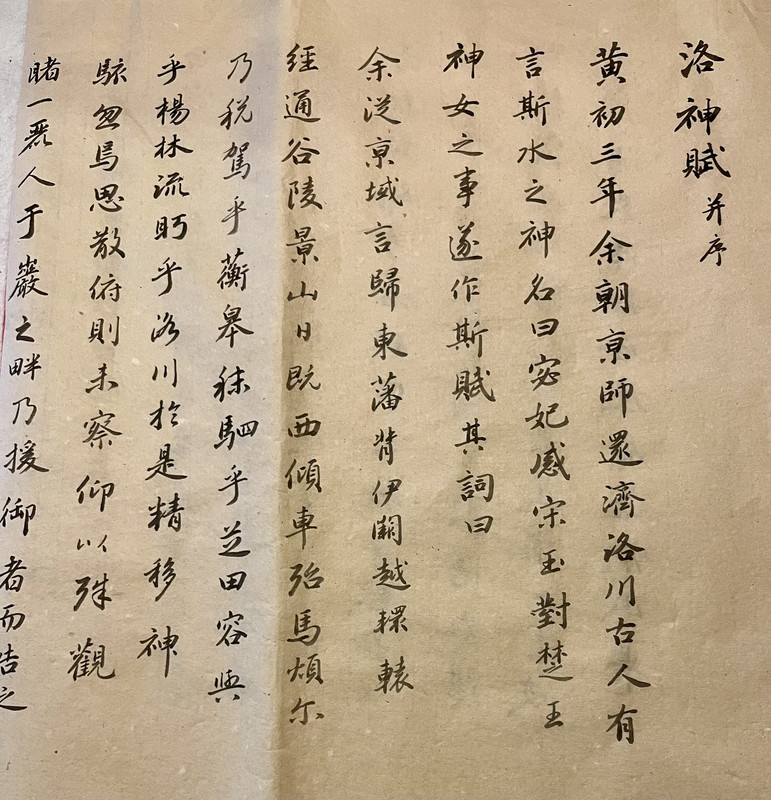 洛神賦并序
黄初三年余朝京師還濟洛川古人有
言斯水之神名曰宓妃感宋玉對楚王
神女之事遂作斯賦其詞曰
余從京域言歸東藩背伊闕越轘轅
經通谷陵景山日既西傾車殆馬煩尔
乃税駕乎蘅皋秣駟乎芝田容與
乎楊林流眄乎洛川於是精移神
駭忽焉思散俯則未察仰以殊觀
睹一麗人于巖之畔乃援御者而告之